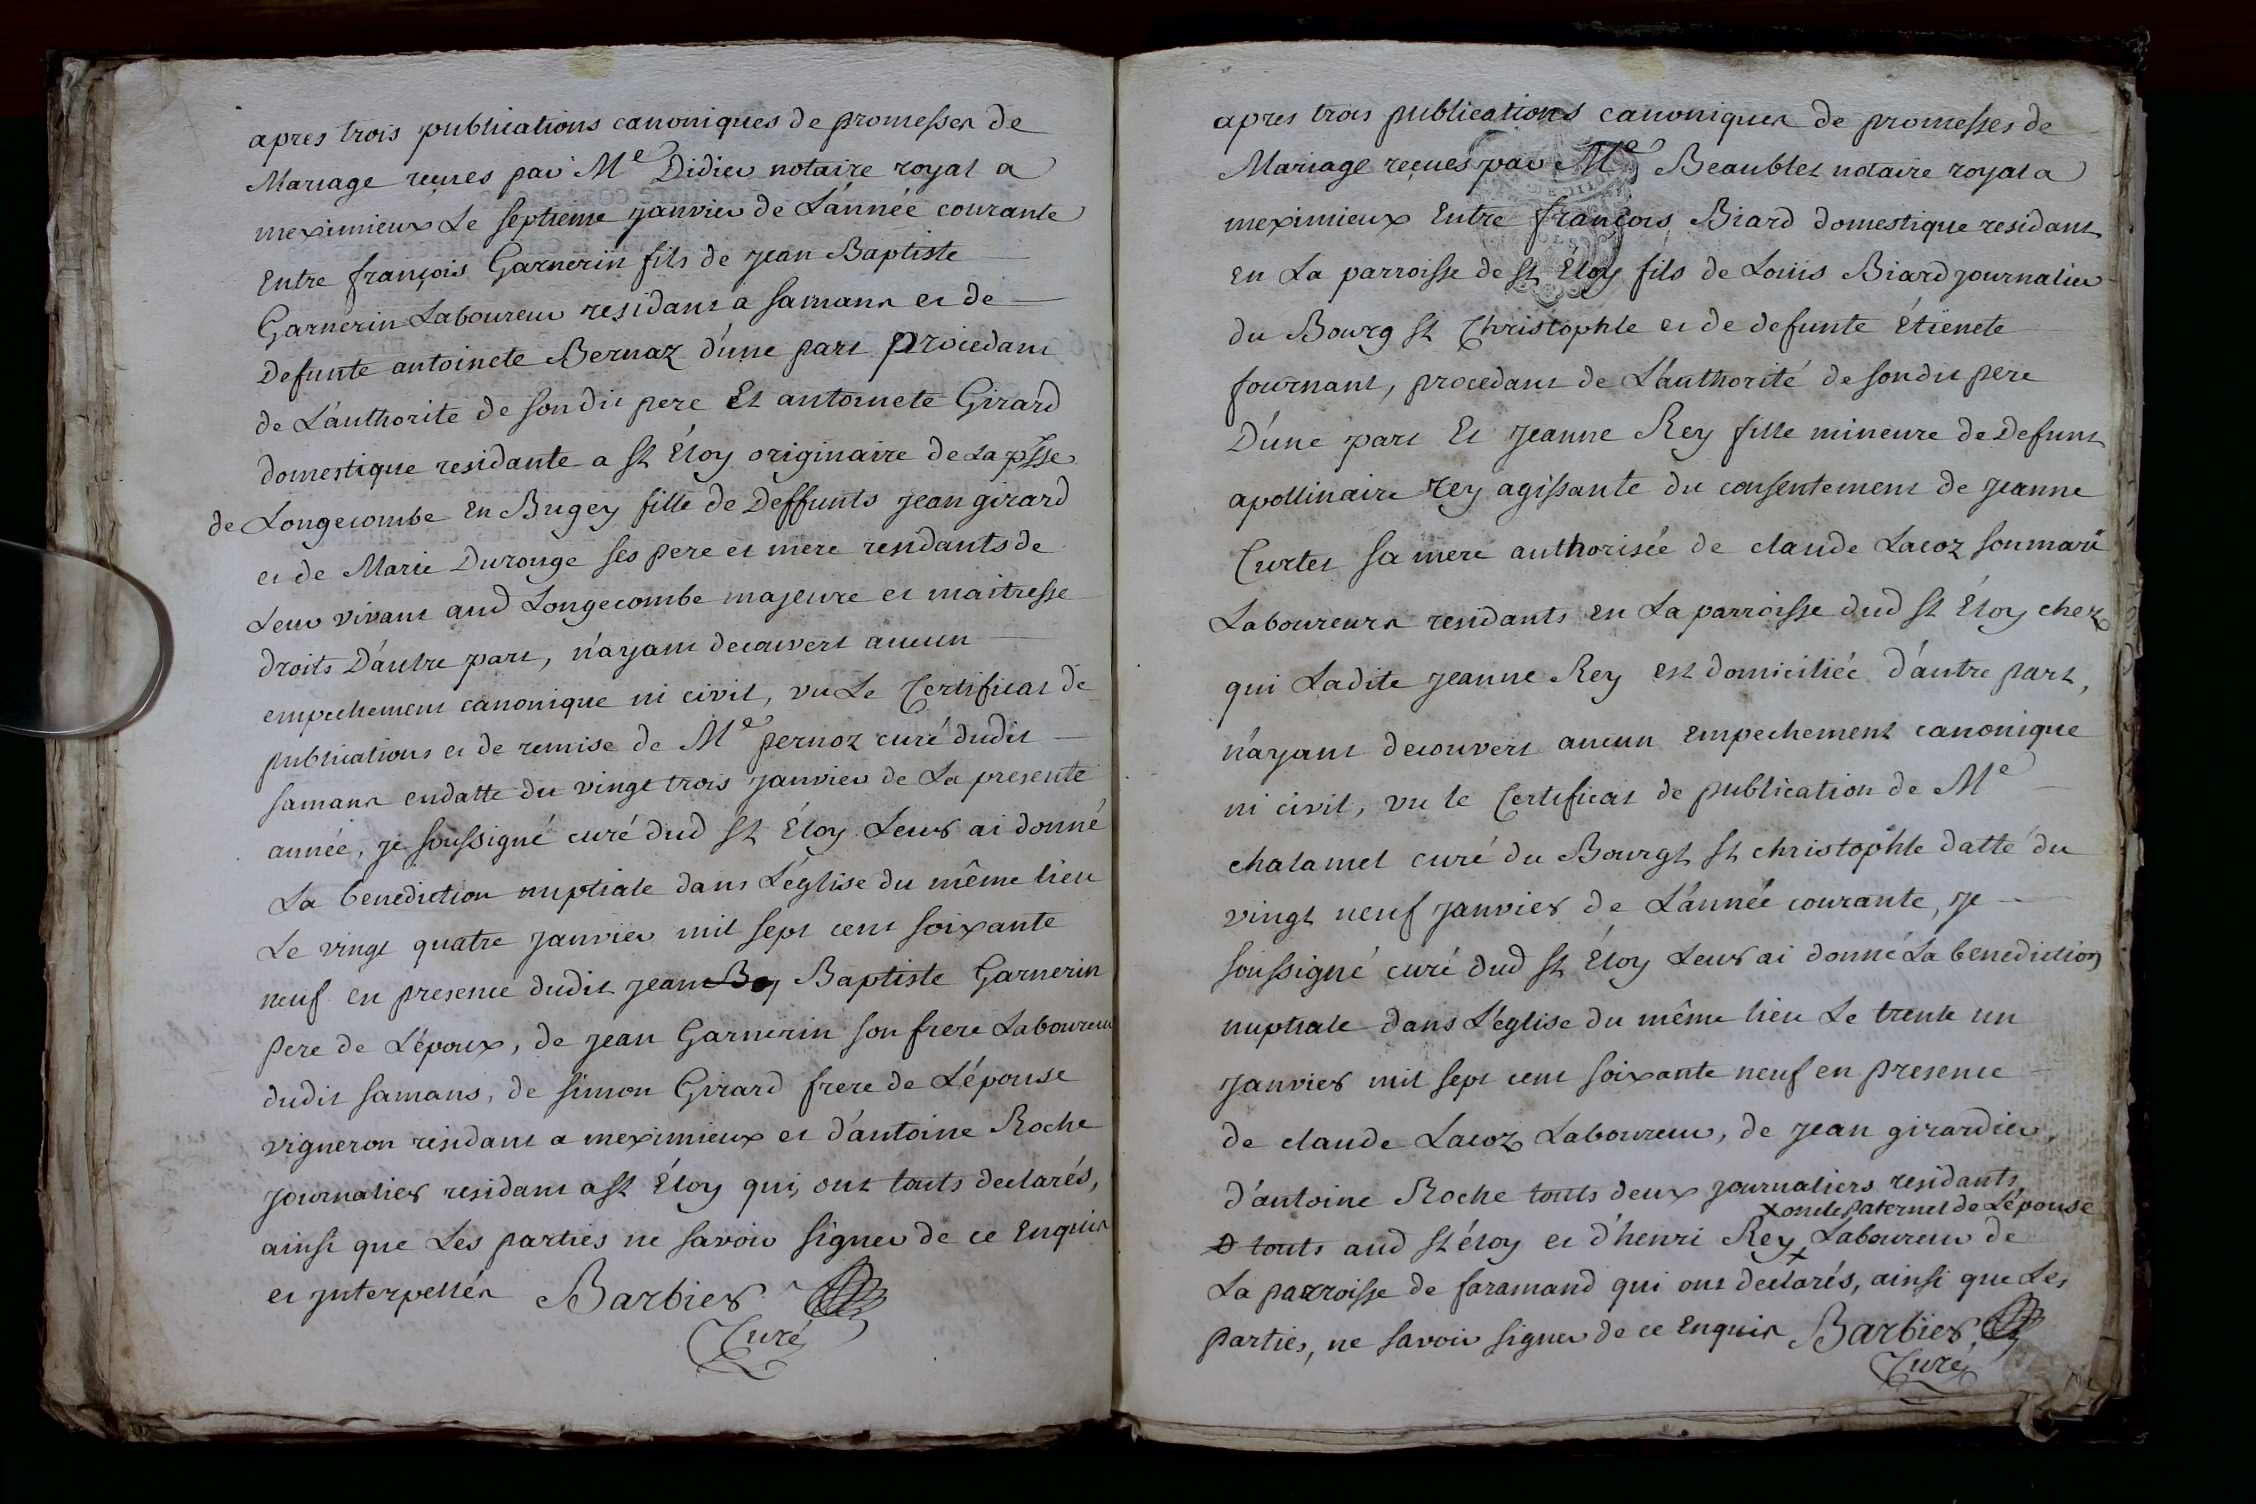 apres trois publications canoniques de promesses de
Mariage reçues par Me Didier notaire royal a
meximieux Le septieme janvier de L'année courante
Entre françois Garnerin fils de jean Baptiste
Garnerin Laboureur residant a samans et de
Defunte antoinete Bernaz d'une part procedant
de L'authorite de son dit pere Et antoinete Girard
domestique residante a st Éloy originaire de La psse
de Longecombe En Bugey fille de Deffunts jean girard
et de Marie Durouge ses pere et mere residants de
Leur vivant aud Longecombe majeure et maitresse
droits D'autre part, n'ayant decouvert aucun
empechement canonique ni civil, vu Le Certificat de
publications et de remise de Me pernoz curé dudit
samans endatte du vingt trois janvier de La presente
année, je soussigné curé dud st Éloy Leurs ai donné
La benediction nuptiale dans L'église du même lieu
Le vingt quatre janvier mil sept cent soixante
neuf en presence dudit jean Baptiste Garnerin
pere de L'époux, de jean Garnerin son frere Laboureur
dudit samans, de simon Girard frere de L'épouse
vigneron residant a meximieux et d'antoine Roche
journalier residant a st Éloy qui, ont touts declarés,
ainsi que Les parties ne savoir signer de ce Enquis
et jnterpellés Barbier
Curé
apres trois publications canoniques de promesses de
Mariage reçues par Me Beaublet notaire royal a
meximieux Entre françois Biard domestique residant
en La parroisse de st Éloy fils de Loüis Biard journalier
du Bourg st Christophle et de defunte Étienete
fournant, procedant de L'authorité de son dit pere
D'une part Et jeanne Rey fille mineure de Defunt
apollinaire rey agissante du consentement de jeanne
Curtet sa mere authorisée de claude Lacoz son mari
Laboureurs residants en La parroisse dud st Éloy chez
qui Ladite jeanne Rey est domiciliée d'autre part,
n'ayant decouvert aucun empechement canonique
ni civil, vu le Certificat de publication de Me
chatamel curé du Bourgt st christophle datté du
vingt neuf janvier de L'année courante, je
soussigné curé dud st Éloy Leurs ai donné La benediction
nuptiale dans L'église du même lieu Le trente un
janvier mil sept cent soixante neuf en presence
de claude Lacoz Laboureur, de jean girardier,
d'antoine Roche touts deux journaliers residants
x oncle paternel de L'épouse
D touts aud st éloy et d'henri Rey x Laboureur de
La parroisse de faramand qui ont declarés, ainsi que Les
parties, ne savoir signer de ce Enquis Barbier
Curé